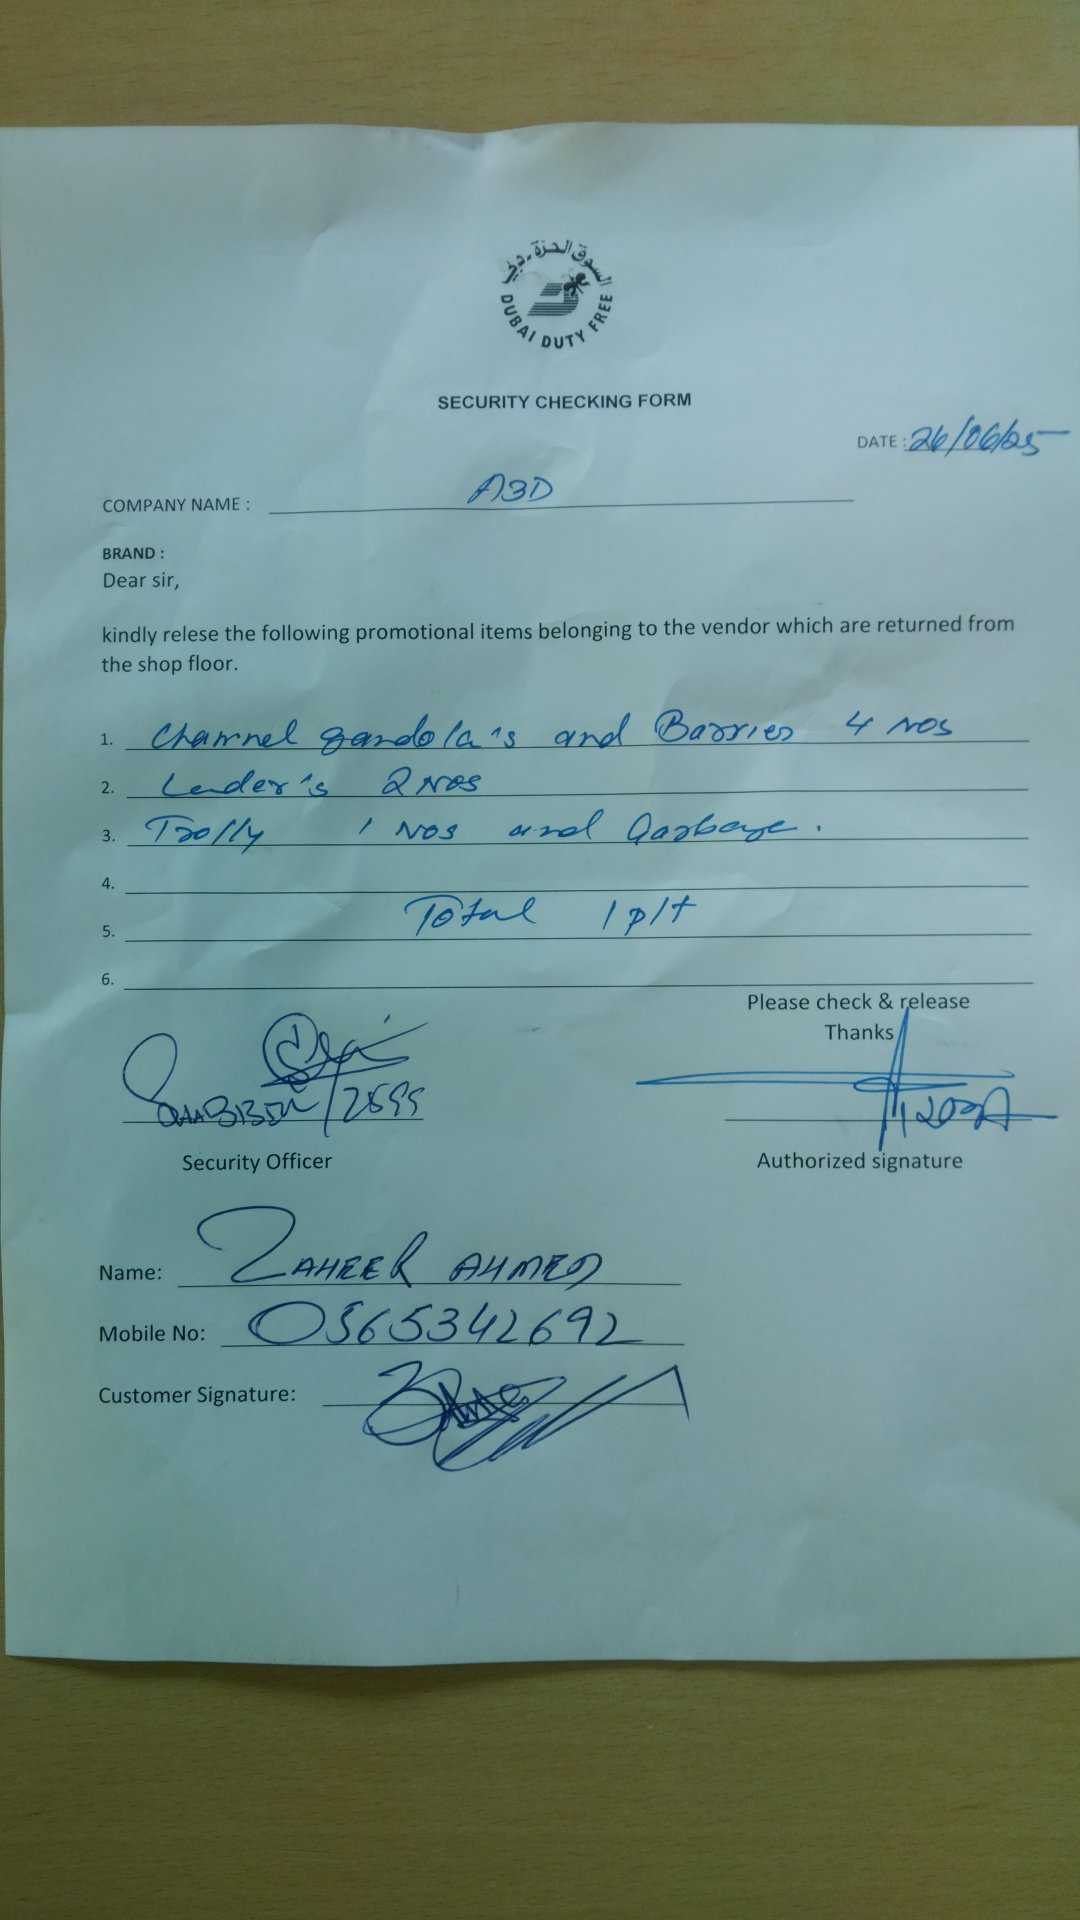 السوق الحرة - دبي
DUBAI DUTY FREE
SECURITY CHECKING FORM
DATE : 26/06/25
COMPANY NAME : A3D
BRAND :
Dear sir,
kindly relese the following promotional items belonging to the vendor which are returned from
the shop floor.
1. Channel gandola's and Barrier 4 NOS
2. Leader's 2 NOS
3. Trolly 1 NOS and Garbage.
4.
5. Total 1 plt
6.
Please check & release
Thanks
/2599
Security Officer
Authorized signature
Name: ZAHEER AHMED
Mobile No: 0565342692
Customer Signature: